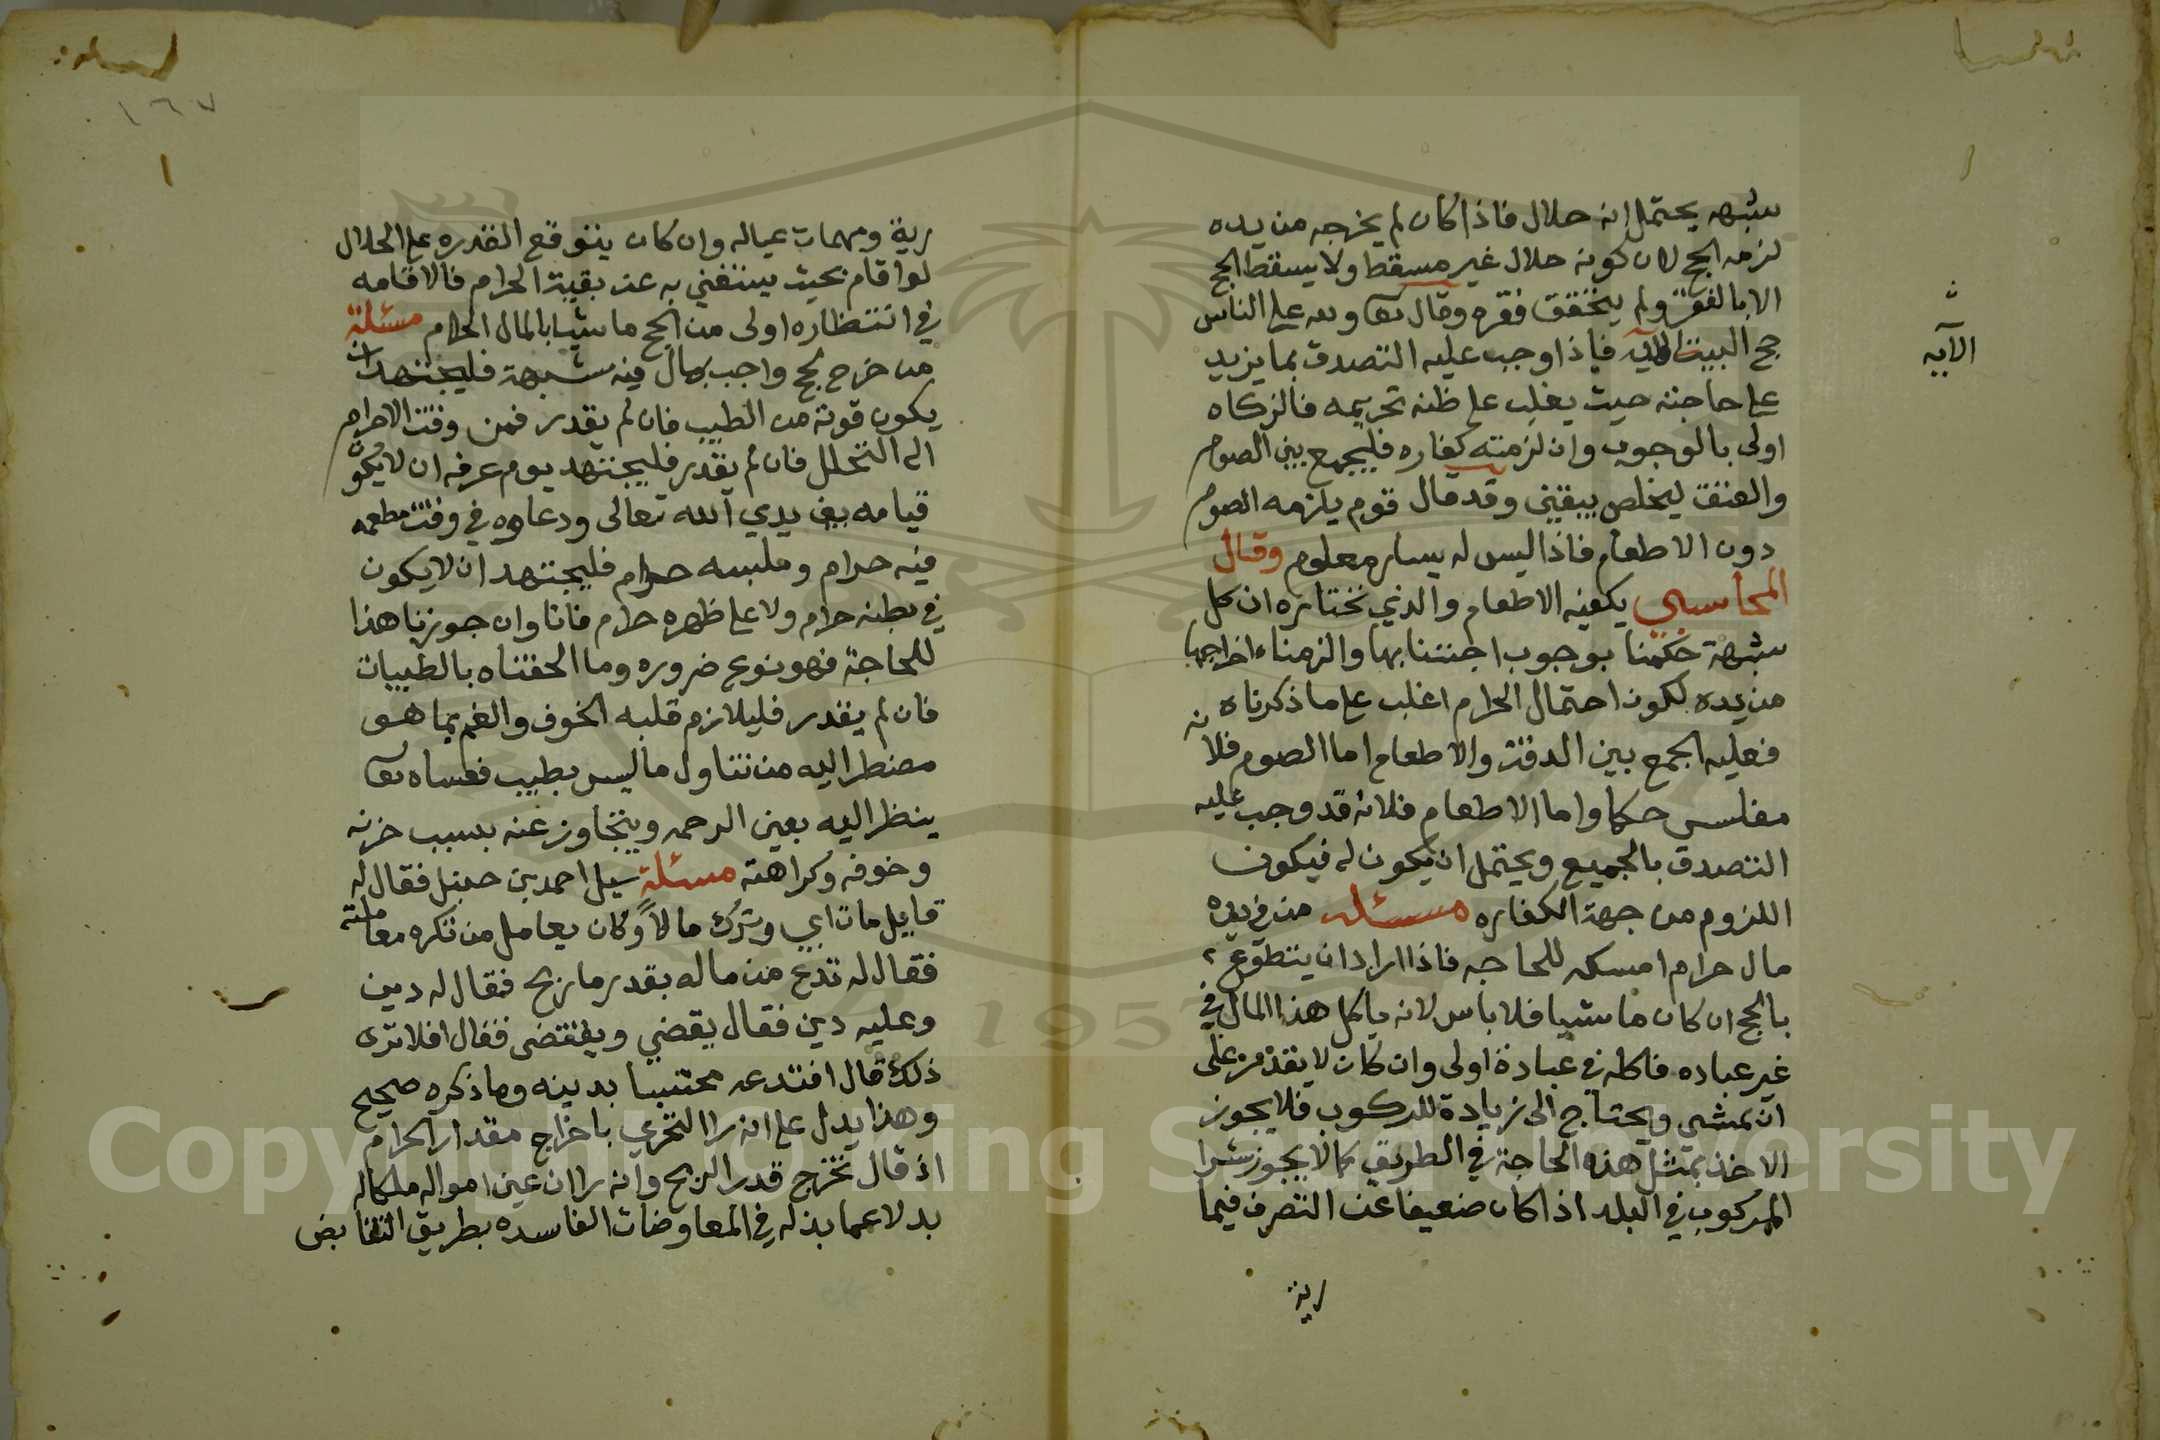 شبهه يحتمل انه حلال فاذا كان لم يخرجه من يده
لزمه الحج لان كونه حلال غير مسقط ولا يسقط الحج
الا بالفقر ولم يتحقق فقره وقال تعا ولله على الناس
حج البيت الايه فاذا وجب عليه التصدق بما يزيد
الآيه
على حاجته حيث يغلب على ظنه تحريمه فالزكاه
اولى بالوجوب وان لزمته كفاره فليجمع بين الصوم
والعتق ليخلص بيقين وقد قال قوم يلزمه الصوم
دون الاطعام فاذا ليس له يسار معلوم وقال
المحاسبي يكفيه الاطعام والذي نختاره ان كل
شبهة حكمنا بوجوب اجتنابها والزمناه اخراجها
من يده لكون احتمال الحرام اغلب على ما ذكرناه
فعليه الجمع بين الدقة والاطعام اما الصوم فلانه
مفلس حكما واما الاطعام فلانه قد وجب عليه
التصدق بالجميع ويحتمل ان يكون له فيكون
اللزوم من جهة الكفاره مسئله من في يده
مال حرام امسكه للحاجه فاذا اراد ان يتطوع
بالحج ان كان ماشيا فلا باس لانه ياكل هذا المال في
غير عباده فاكله في عبادة اولى وان كان لا يقدر على
ان يمشي ويحتاج الى زيادة للركوب فلا يجوز
الاخذ بمثل هذه الحاجة في الطريق كما لا يجوز شرا
المركوب في البلد اذا كان ضعيفا عن التصرف فيما
رية
١٦٧
رية ومهمات عياله وان كان يتوقع القدره على الحلال
لو اقام بحيث يستغني به عن بقية الحرام فالاقامه
في انتظاره اولى من الحج ماشيا بالمال الحرام مسئلة
من خرج لحج واجب بمال فيه شبهة فليجتهد ان
يكون قوته من الطيب فان لم يقدر فمن وقت الاحرام
الى التحلل فان لم يقدر فليجتهد يوم عرفه ان لا يكون
قيامه بين يدي الله تعالى ودعاوه في وقت مطعمه
فيه حرام وملبسه حرام فليجتهد ان لا يكون
في بطنه حرام ولا على ظهره حرام فانا وان جوزنا هذا
للحاجة فهو نوع ضروره وما الحقناه بالطيبات
فان لم يقدر فليلازم قلبه الخوف والغم بما هو
مضطر اليه من تناول ما ليس بطيب فعساه تعا
ينظر اليه بعين الرحمه ويتجاوز عنه بسبب حزنه
وخوفه وكراهته مسئلة سيل احمد بن حنبل فقال له
قايل مات ابي وترك مالا وكان يعامل من تكره معاملته
فقال له تدع من ماله بقدر ما ربح فقال له دين
وعليه دين فقال يقضي ويقتضى فقال افلا ترى
ذلك قال افتدعه محتبسا بدينه وما ذكره صحيح
وهذا يدل على انه را التحري باخراج مقدار الحرام
اذ قال تخرج قدر الربح وانه را ان عين امواله ملكا له
بدلا عما بذله في المعاوضات الفاسده بطريق التقابض
Copyright © King Saud University
1957